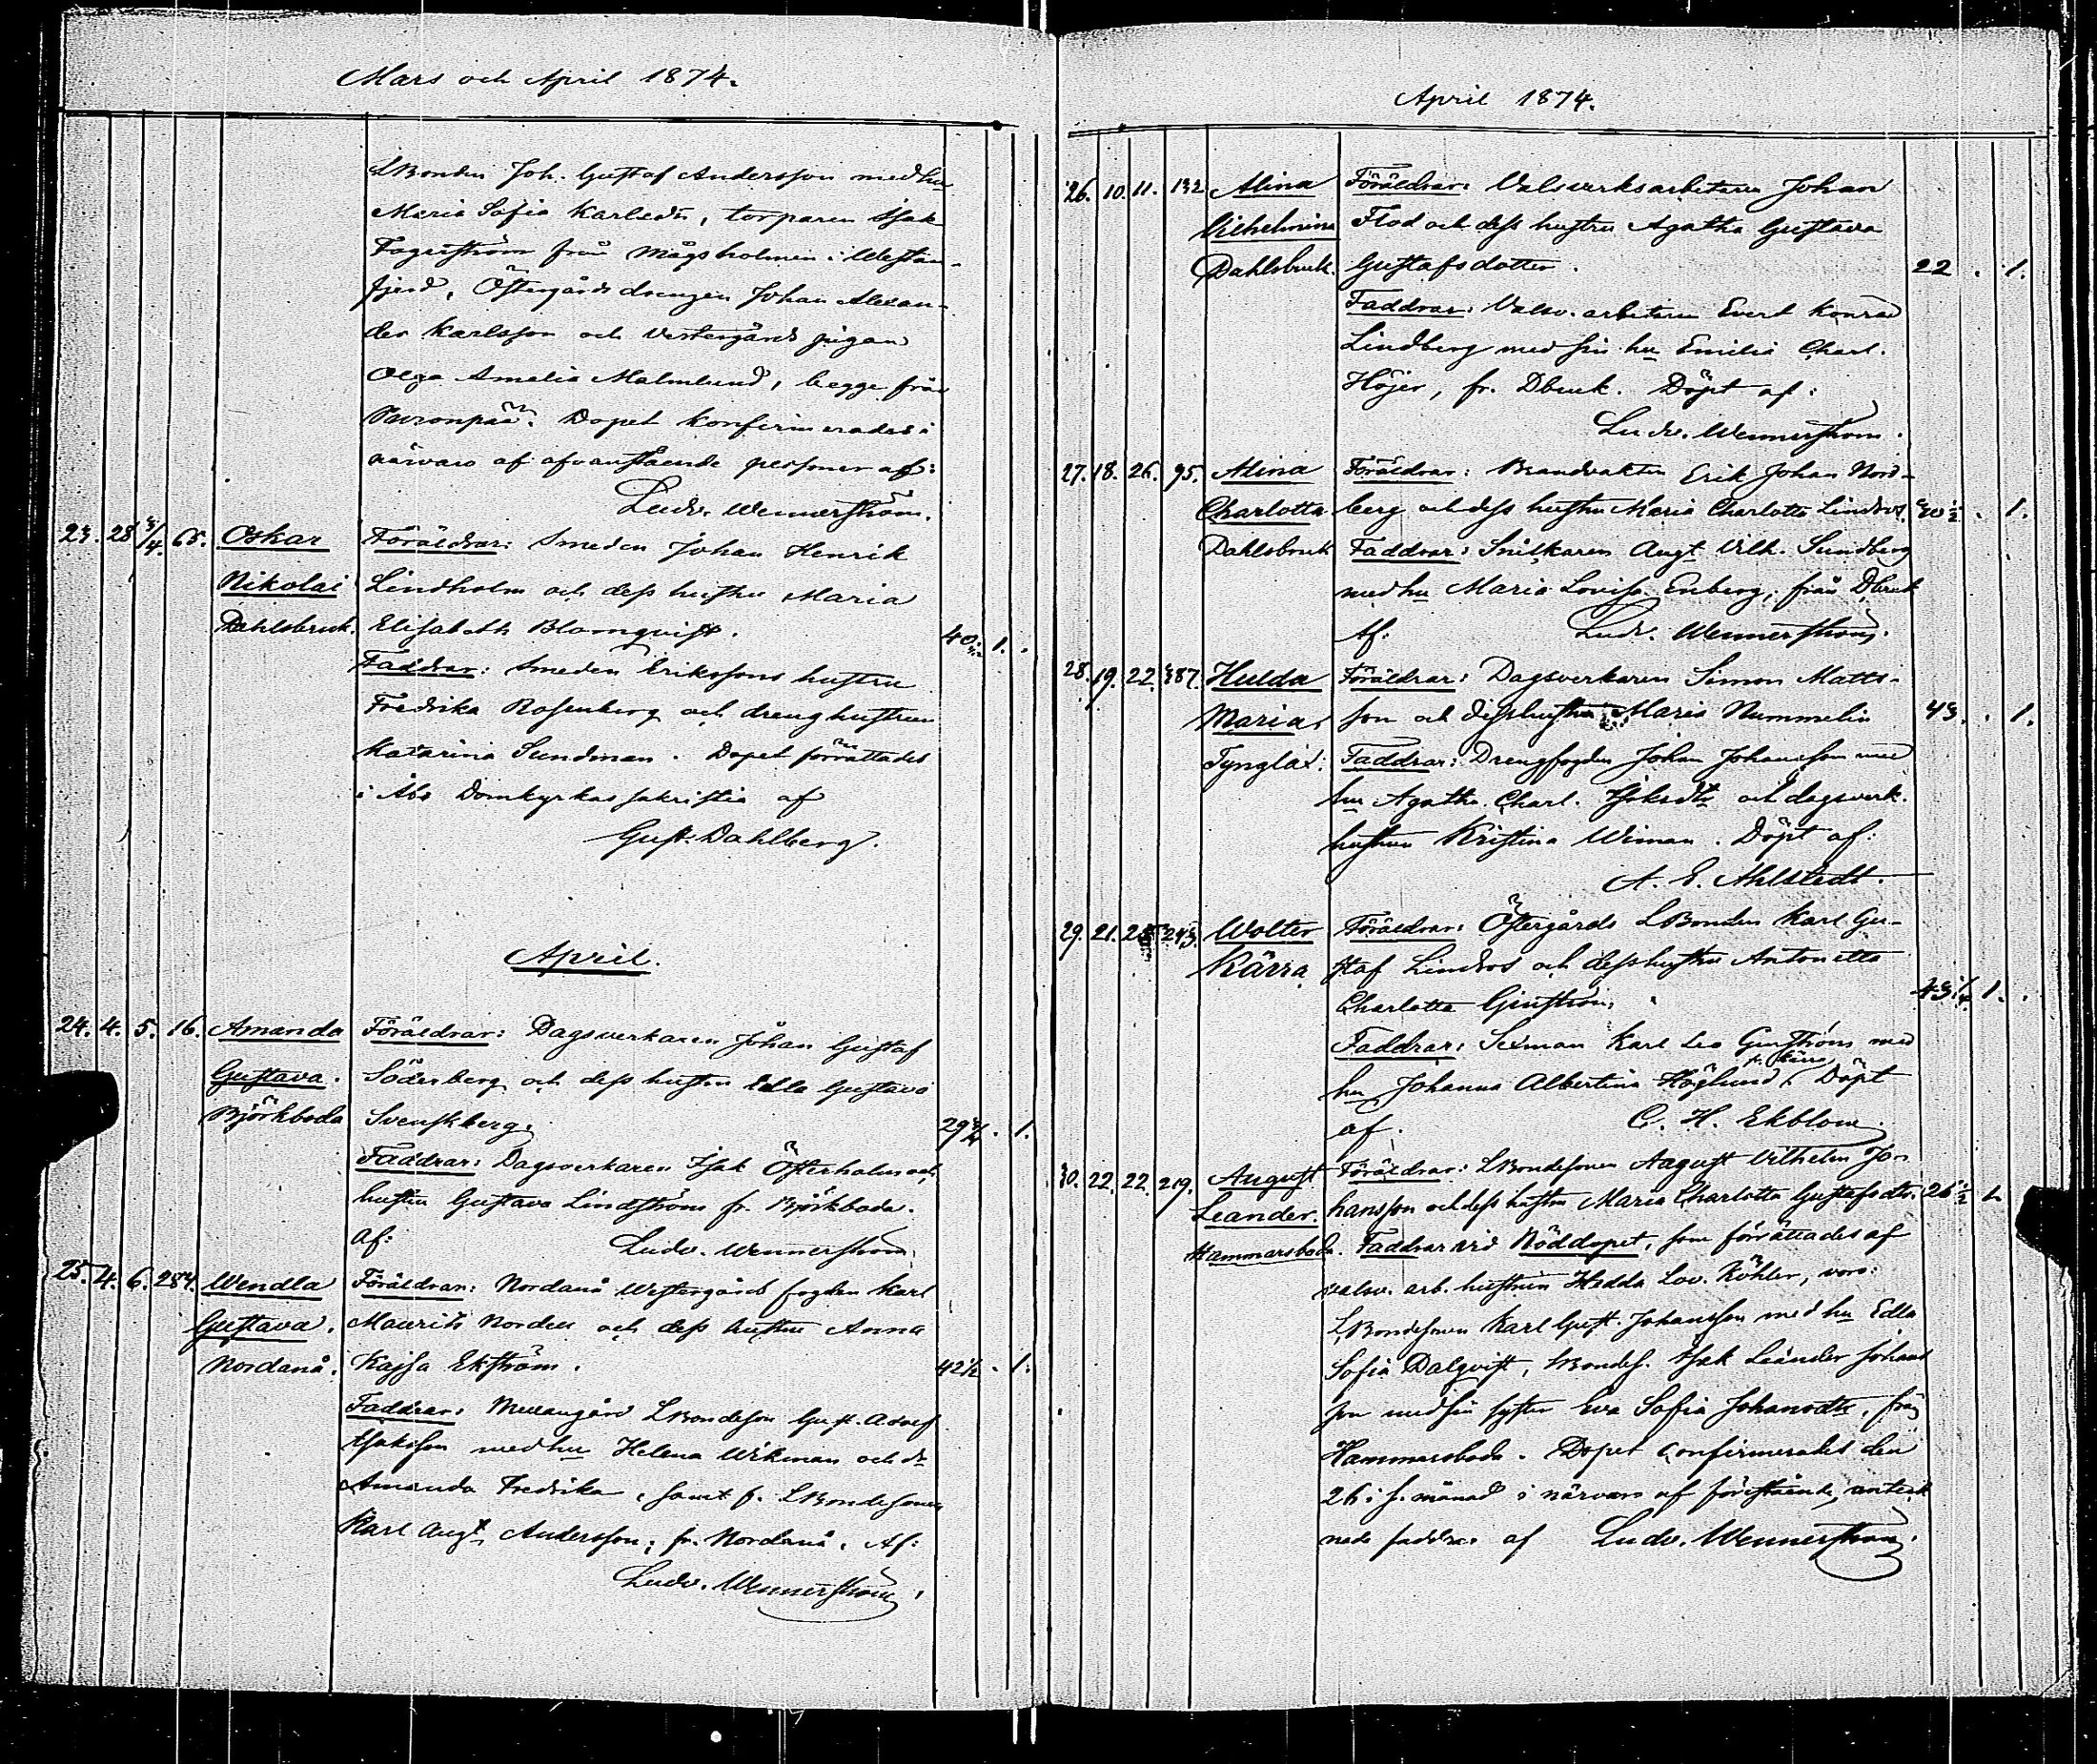 Mars och April 1874.
LBonden Joh. Gustaf Andersson med hu
Maria Sofia Karlsdtr, torparen Isak
Fagerström från Mågsholmen i Westan-
fjerd, Östergårds drengen Johan Alexan-
der Karlsson och Vestergårds pigan
Olga Amelia Malmlund, begge från
Dopet konfirmerades i
närvaro af ofvanstående personer af:
Ludv. Wennerström.
23. 28 3/4. 65. Oskar Föräldrar: Smeden Johan Henrik
Nikolai Lindholm och dess hustru Maria
Dahlsbruk. Elisabeth Blomqvist. 40. 1.
Faddrar: Smeden Erikssons hustru
Fredrika Rosenberg och dreng hustrun
Katarina Sundman. Dopet förrättades
i Åbo Domkyrkas sakristia af
Gust. Dahlberg.
April.
24. 4. 5. 16. Amanda Föräldrar: Dagsverkaren Johan Gustaf
Gustava. Söderberg och dess hustru Edla Gustava
Björkboda Svenskberg. 29 3/4. 1.
Faddrar: Dagsverkaren Isak Österholm och
hustru Gustava Lindström fr. Björkboda.
Af: Ludv. Wennerström.
25. 4. 6. 284. Wendla Föräldrar: Nordanå Westergårds fogden Karl
Gustava. Maurits Nordell och dess hustru Anna
Nordanå. Kajsa Ekström. 42 1/2. 1.
Faddrar: Mellangård LBondeson Gust. Adolf
Isaksson med hu Helena Wikman och dr
Amanda Fredrika, samt f. LBondesonen
Karl Augt Andersson, fr. Nordanå. Af:
Ludv. Wennerström.
April 1874.
26. 10. 11. 132 Alina Föräldrar: Valsverksarbetaren Johan
Vilhelmina Flod och dess hustru Agatha Gustava
Dahlsbruk. Gustafsdotter. 22. 1.
Faddrar: Valsv. arbetaren Evert Konrad
Lindberg med sin hu Emilia Charl.
Höjer, fr. Dbruk. Döpt af:
Ludv. Wennerström.
27. 18. 26. 95. Alina Föräldrar: Brandvakten Erik Johan Nord-
Charlotta berg och dess hustru Maria Charlotta Lindros. 1.
Dahlsbruk Faddrar: Snikaren Augt Vilh. Sundberg
med hu Maria Lovisa Enberg, från Dbruk
Af: Ludv. Wennerström.
28. 19. 22. 387. Hulda Föräldrar: Dagsverkaren Simon Matts-
Maria. son och dess hustru Maria Nummelin 43. 1.
Tynglax. Faddrar: Drengfogden Johan Johansson med
hu Agatha Charl. Isaksdtr och dagsverk.
hustrun Kristina Wiman. Döpt af:
A. E. Ahlstedt.
29. 21. 25 243. Wolter Föräldrar: Östergårds LBonden Karl Gu-
Kärra staf Lindros och dess hustru Antonetta
Charlotta Genström. 43 1/4 1.
Faddrar: Sexman Karl Leo Genström med
hu Johanna Albertina Höglund fr. Kärra Döpt
af. C. H. Ekblom.
30. 22. 22. 219. August Föräldrar: LBondesonen August Vilhelm Jo-
Leander. hansson och dess hustru Maria Charlotta Gustafsdtr. 26 1/2 1.
Hammarsboda. Faddrar vid Nöddopet, som förrättades af
valsv. arb. hustrun Hedda Lov. Köhler, voro:
LBondesonen Karl Gust. Johansson med hu Edla
Sofia Dalqvist, LBondes. Isak Leander Johans
son med sin syster Eva Sofia Johansdtr, från
Hammarsboda. Dopet confirmerades den
26 i s. månad i närvaro af förestående, anteck
nade faddrar af Ludv. Wennerström.